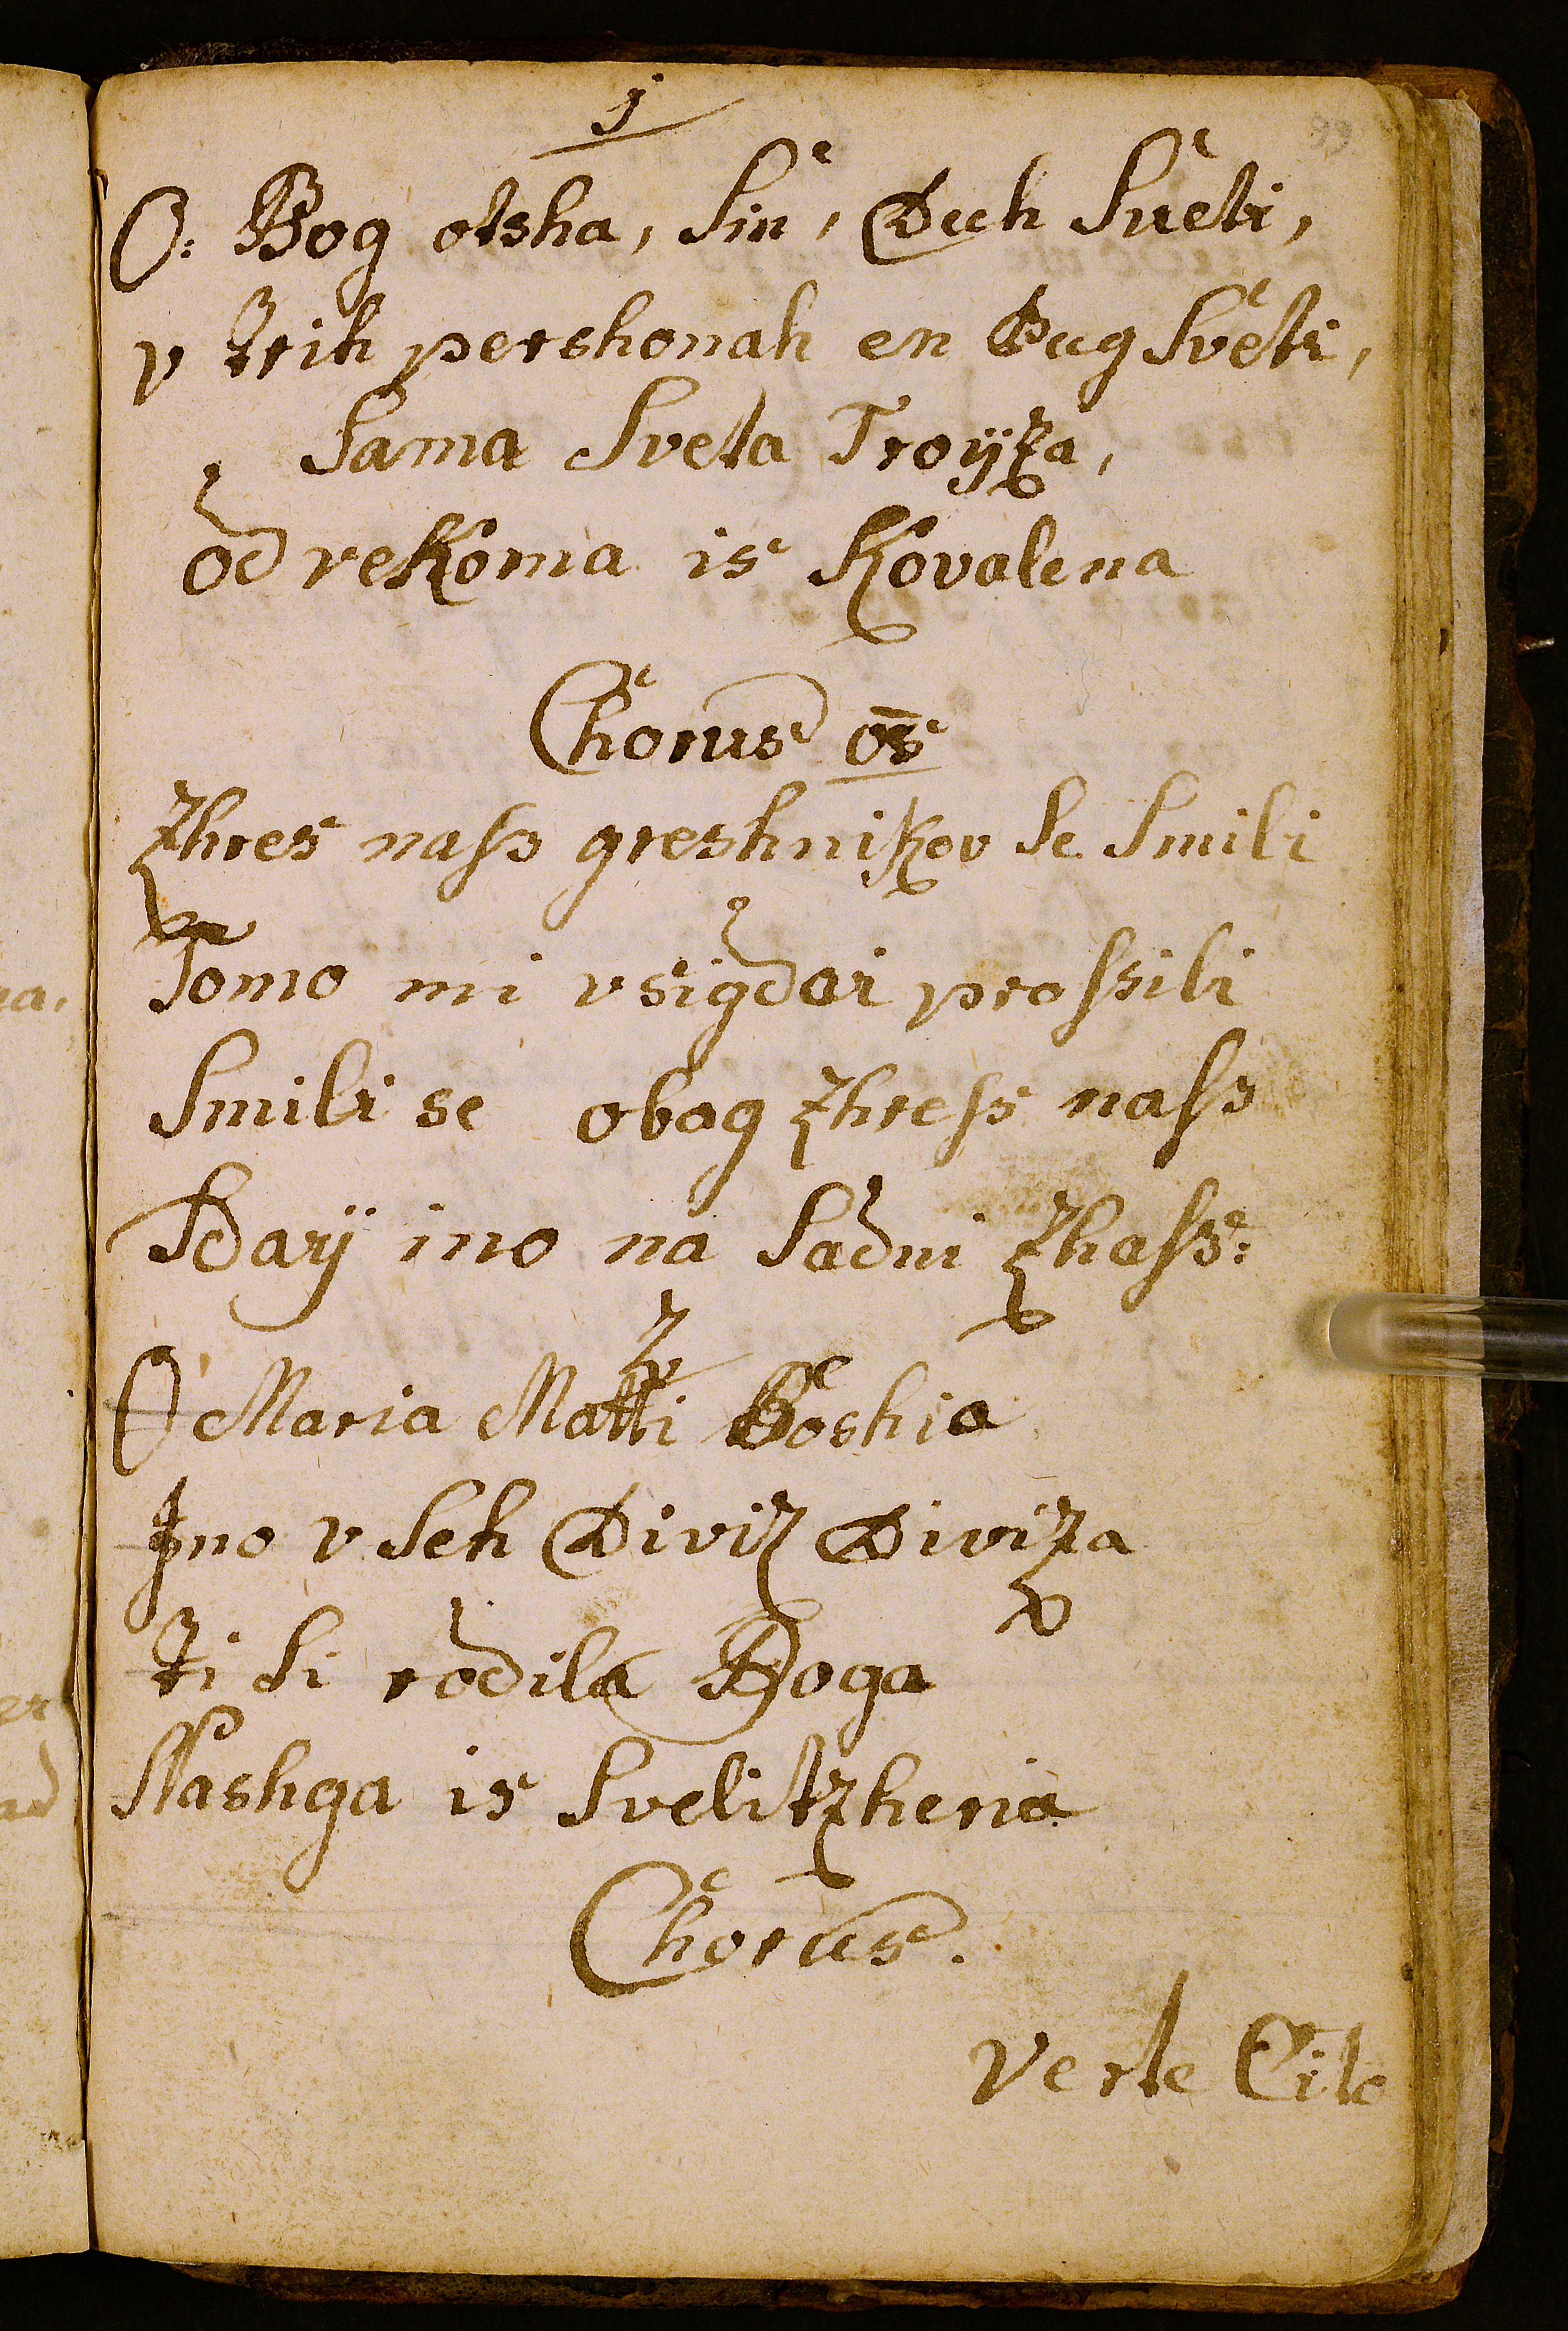 1
99
O: Bog otsha, Sin, Duh Sueti,
v trih pershonah en Bug Sveti,
Sama Sveta Troyza,
od vekoma is Kovalena
Chorus
Zhres nass greshnikov Se Smili
Tomo mi vsigdar prossili
Smili se obog zhress nass
Sday ino na Sadni zhass:
2
O Maria Matti Boshia
Ino v Seh Diviz Diviza
ti Si rodila Boga
Nashga is Svelitzheria
Chorus.
Verte Cito